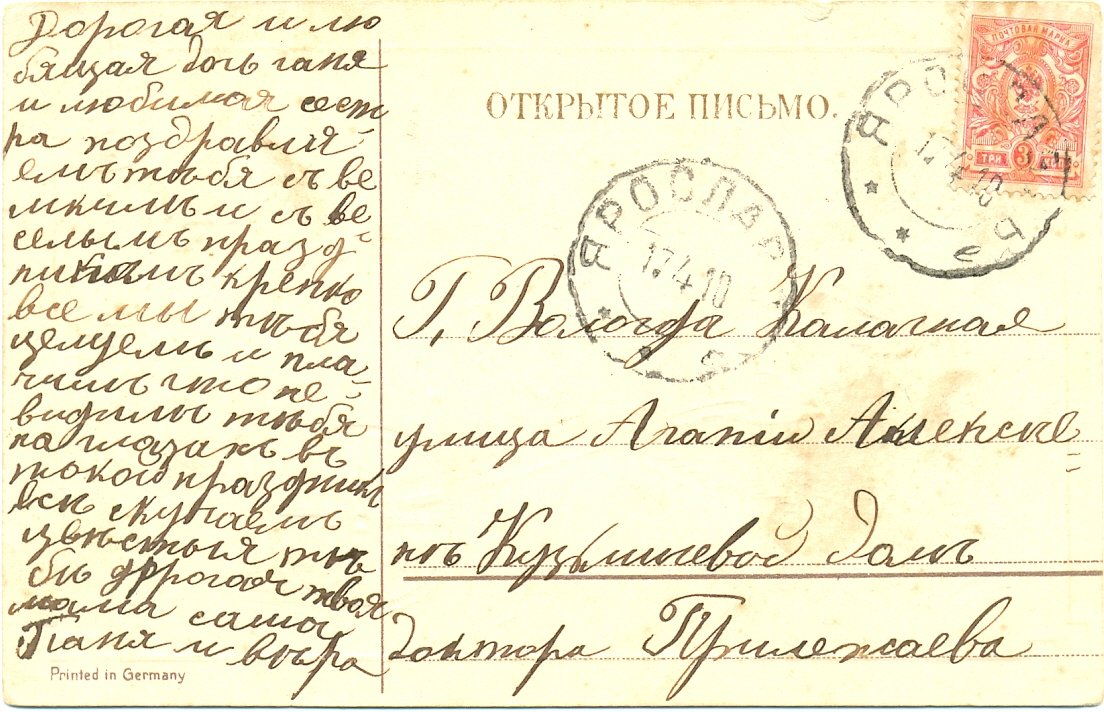 Дорогая и лю
бящая дочь ганя
и любимая сест
ра поздравля-
емъ тѣбя съ ве
ликимъ и съ ве
селымъ празд-
никомъ крепко
все мы тѣбя
целуемъ и пла-
чимъ что не-
видимъ тѣбя
на глазахъ въ
такой праздникъ
всѣ скучаемъ
тѣ
бѣ дорогая твоя
мама саша
Таня и вѣра
Printed in Germany
ОТКРЫТОЕ ПИСЬМО.
ПОЧТОВАЯ МАРКА
ТРИ 3 КОП.
ЯРОСЛАВЛЬ
17 4 10
ЯРОСЛАВ
17 4 10
Г. Вологда Калачная
улица Агапiи Алексѣе=
нѣ Кузьмичевой домъ
доктора Прилежаева